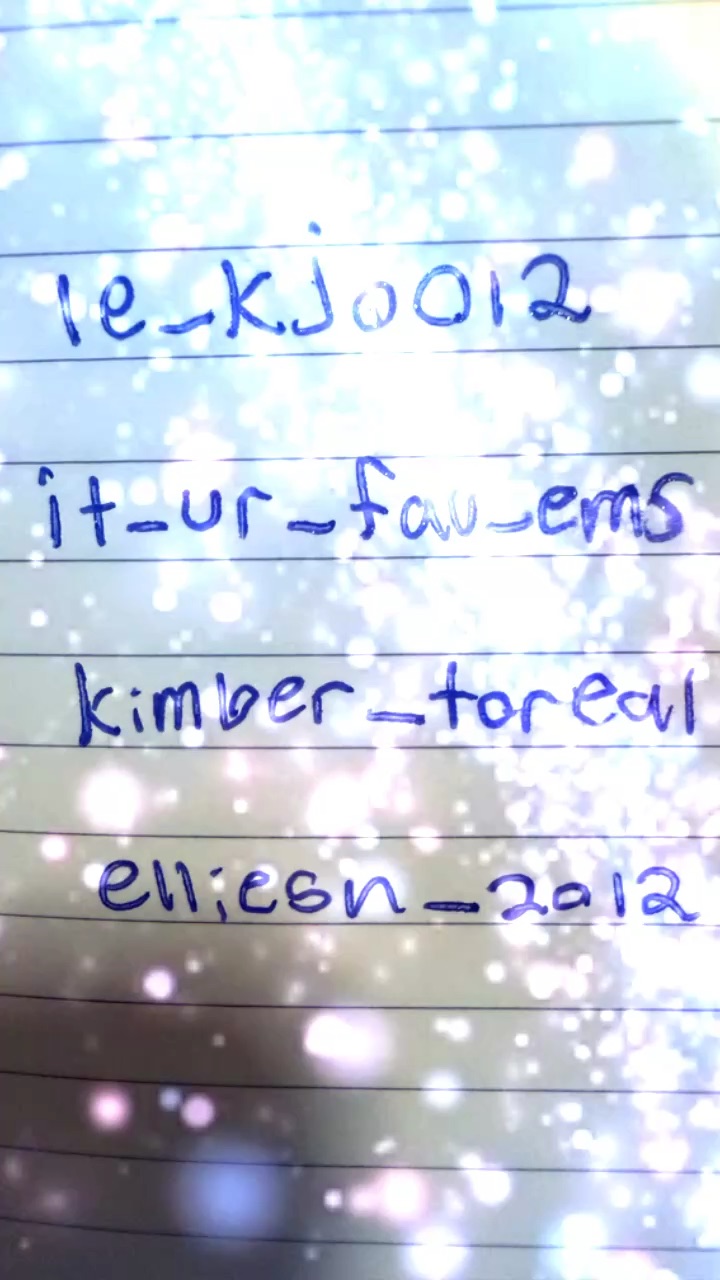 le_kjo012
it_ur_fav_ems
kimber_toreal
elliesn_2012